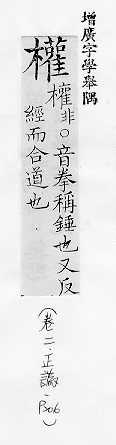 增廣字學舉隅
權
權非○音拳稱錘也又反
經而合道也.
(卷二.正譌.P306)